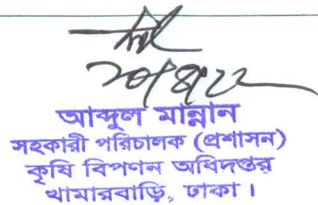 আব্দুল মান্নান
সহকারী পরিচালক (প্রশাসন)
কৃষি বিপণন অধিদপ্তর
খামারবাড়ি, ঢাকা।